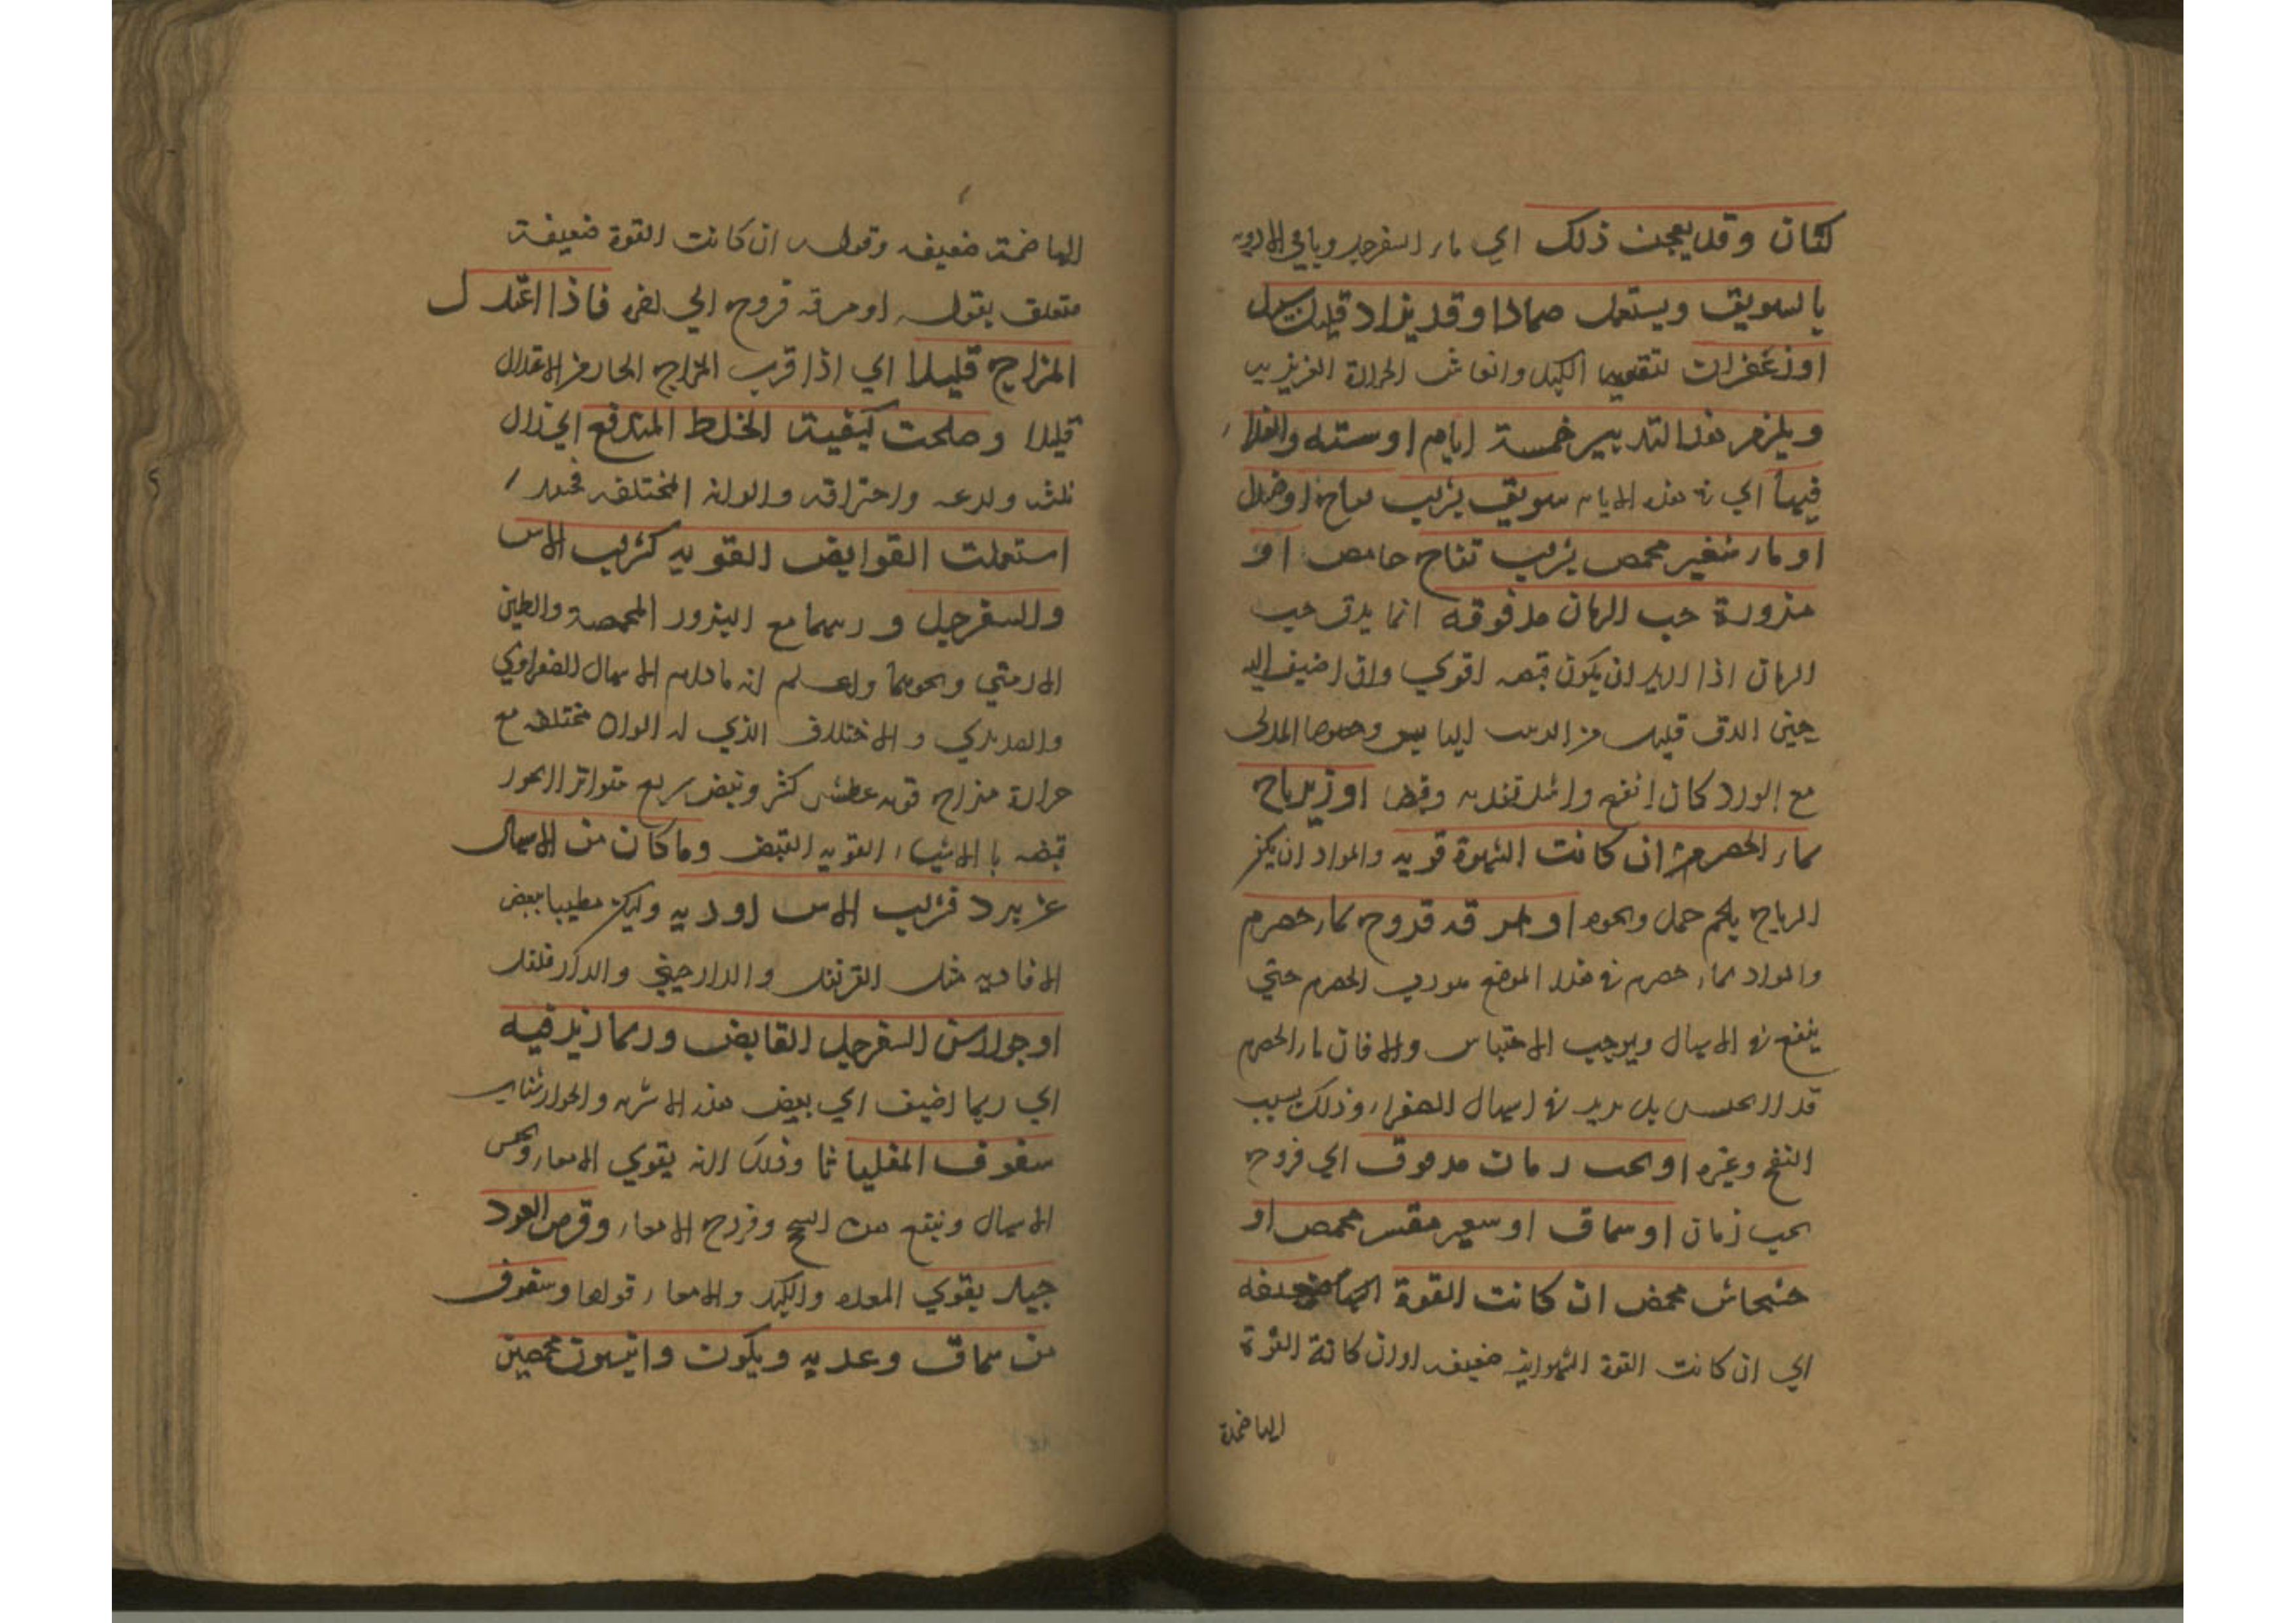 كتان وقد يعجن ذلك اي ماء السفرجل وباقي الادويه
بالسويق ويستعمل ضمادا وقد يزاد قليل
او زعفران لتقويه الكبد وانعاش الحرارة الغريزيه
ويلزم هذا التدبير خمسة ايام او ستة والغذاء
فيها اي في هذه الايام سويق بزيت او
او ماء شعير محمص بزيت تفاح حامض او
مزورة حب الرمان مدقوقه انما يدق حب
الرمان اذا اريد ان يكون قبضه اقوي وان اضيف اليه
حين الدق قليل من الزبيب اليابس وخصوصا المدقق
مع الورد كان انفع واشد تغذيه وقبضا او زيرباج
بماء الحصرم ان كانت الشهوة قويه والمراد ان يكون
الزرباج بلحم حمل ونحوه او مرقه فروج بماء حصرم
والمراد بماء حصرم في هذا الموضع الحصرم حتي
ينفع في الاسهال ويوجب الاحتباس والا فان ماء الحصرم
قد لا يحبس بل يزيد في اسهال الصفراء وذلك بسبب
النفخ وغيره او بحب رمان مدقوق اي فروج
بحب رمان او سماق او شعير مقشر محمص او
خشخاش محمص ان كانت القوة ضعيفه
اي ان كانت القوة الشهوانيه ضعيفه او ان كانت القوة
الهاضمة
الهاضمة ضعيفه وقوله ان كانت القوة ضعيفة
متعلق بقوله او مرقه فروج الي اخره فاذا اعتدل
المزاج قليلا اي اذا قرب المزاج الحار من الاعتدال
قليلا وصلحت كيفية الخلط المندفع اي زال
ولذعه واحتراقه والوانه المختلفه فحينئذ
استعملت القوابض القويه كشراب الاس
والسفرجل وربهما مع البزور المحمصة والطين
الارمني ونحوهما واعلم انه ما دام الاسهال الصفراوي
والصديدي والاختلاف الذي له الوان مختلفه مع
حرارة مزاج قويه عطش كثير ونبض سريع متواتر لا يجوز
قبضه بالاشياء القويه القبض وما كان من الاسهال
عن برد فشراب الاس او ربه وليكن مطيبا ببعض
الافاويه مثل القرنفل والدارصيني والدارفلفل
او جوارش السفرجل القابض وربما زيد فيه
اي ربما اضيف الي بعض هذه الاشربه والجوارشنات
سفوف المقلياثا وذلك لانه يقوي الامعاء ويحبس
الاسهال وينفع من السحج وقروح الامعاء وقرص العود
جيد يقوي المعده والكبد والامعاء وسفوف
من سماق وكمون وانيسون محمصين